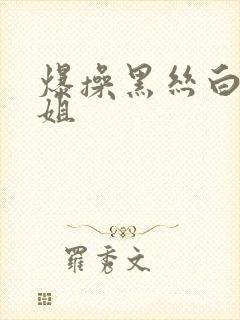 爆操黑丝白
姐
羅秀文